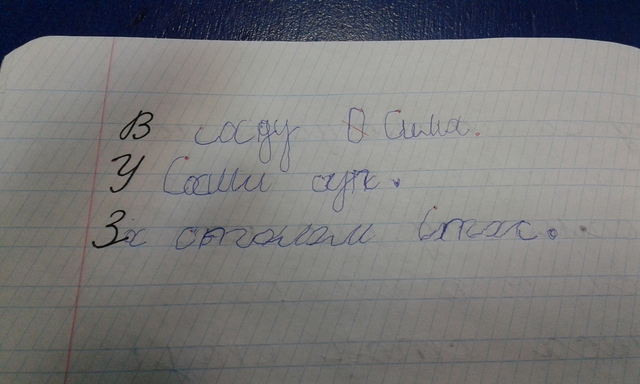 В саду Сима.
У Саши суп.
За столом Стас.